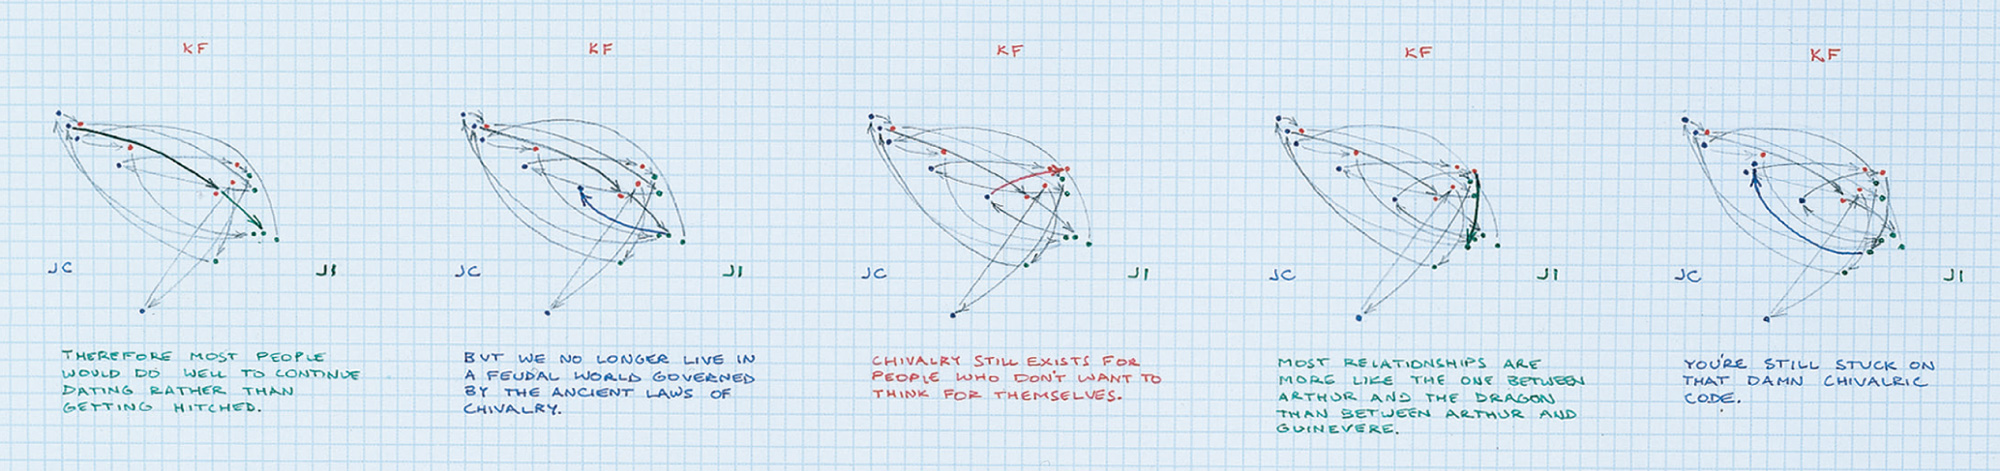 KF
JC
JI
THEREFORE MOST PEOPLE
WOULD DO WELL TO CONTINUE
DATING RATHER THAN
GETTING HITCHED.
KF
JC
JI
BUT WE NO LONGER LIVE IN
A FEUDAL WORLD GOVERNED
BY THE ANCIENT LAWS OF
CHIVALRY.
KF
JC
JI
CHIVALRY STILL EXISTS FOR
PEOPLE WHO DON'T WANT TO
THINK FOR THEMSELVES.
KF
JC
JI
MOST RELATIONSHIPS ARE
MORE LIKE THE ONE BETWEEN
ARTHUR AND THE DRAGON
THAN BETWEEN ARTHUR AND
GUINEVERE.
KF
JC
JI
YOU'RE STILL STUCK ON
THAT DAMN CHIVALRIC
CODE.